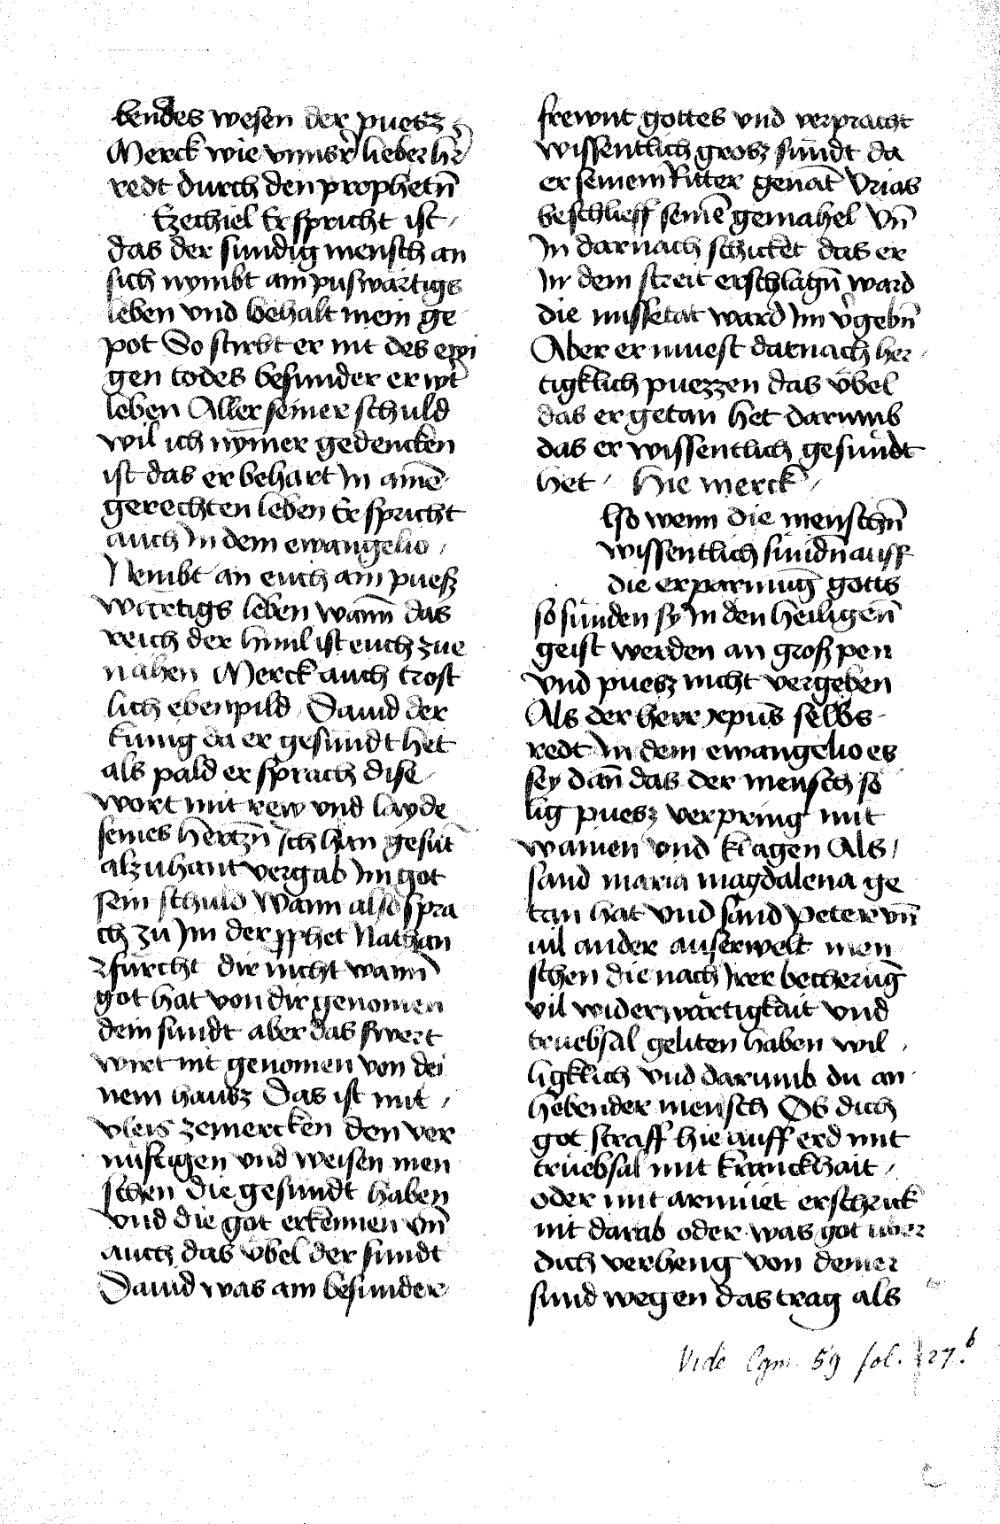 bendes wesen der puesz
Merck wie vnnsr̄ lieber hr̄
redt durch den prophetn̄
Ezechiel Er spricht ist
das der sundig mensch an
sich nymbt ain puswartigs
leben vnd behalt mein ge
pot So stirbt er nit des ewi
gen todes besunder er wirt
leben Aller seiner schuld
wil ich nymer gedencken
ist das er behart In ainē
gerechten leben Er spricht
auch In dem ewangelio
Nembt an euch ain puesz
wirtigs leben wann̄ das
reich der himl ist euch zue
nahen Merck auch trost
lich ebenpild Dauid der
kunig da er gesundt het
als pald er sprach dise
wort mit rew vnd layde
seines hertzn̄ Ich han gesūt
alzuhant vergab Im got
sein schuld Wann also spra
ch zu Im der ꝓphet Nathan
furcht dir nicht wann̄
got hat von dir genomen
dein sundt aber das swert
wirt nit genomen von dei
nem hausz Das ist mit
vleis zemercken den ver
nuftigen vnd weisen men
schen die gesundt haben
vnd die got erkennen vn̄
auch das vbel der sundt
Dauid was ain besunder
frewnt gottes vnd verpracht
wissentlich grosz sundt da
er seinem Ritter genāt Vrias
beschlieff seinē gemahel Vn̄
In darnach schicket das er
In dem streit erschlagn̄ ward
die missetat ward Im v̄gebn̄
Aber er muest darnach her
tigklich puezzen das vbel
das er getan het darumb
das er wissentlich gesundt
het Hie merck
lso wenn die menschn̄
wissentlich sundn̄ auff
die erparmūg gotts
so sunden sy In den heiligen̄
geist werden an grosz pen
vnd puesz nicht vergeben
Als der herr xpūs selbs
redt In dem ewangelio es
sey dan̄ das der mensch so
lig puesz verpring mit
wainen vnd klagen Als
sand maria magdalena ge
tan hat vnd sand Peter vn̄
uil ander auserwelt men
schen die nach Irer becherūg
vil widerwartigkait vnd
truebsal geliten haben wil
ligklich vnd darumb du an
hebender mensch Ob dich
got straff hie auff erd mit
truebsal mit kranckhait
oder mit armuet erschrick
nit darab oder was got uber
dich verheng von deiner
sund wegen das trag als
Vide Cgm. 59 fol. 127.b